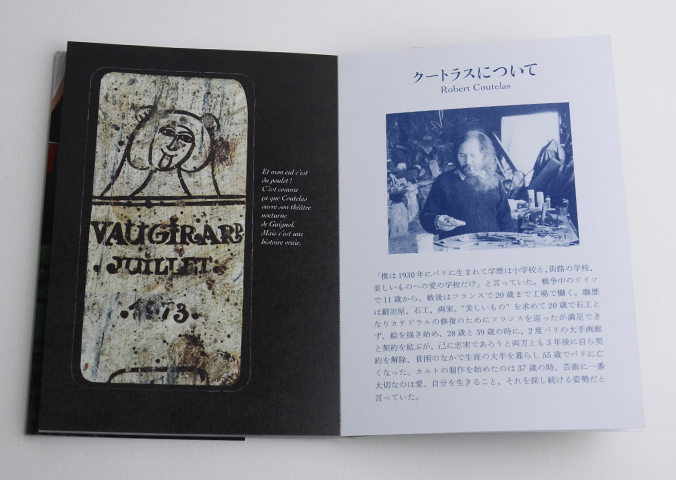 VAUGIRARD
JUILLET.
.1973.
Et mon cul c'est
du poulet !
C'est comme
ça que Coutelas
ouvre son théâtre
nocturne
de Guignol.
Mais c'est une
histoire vraie.
クートラスについて
Robert Coutelas
「僕は1930年にパリに生まれて学歴は小学校と、街路の学校、
美しいものへの愛の学校だけ」と言っていた。戦争中のドイツ
で11歳から、戦後はフランスで20歳まで工場で働く。職歴
は鍛冶屋、石工、画家。"美しいもの"を求めて20歳で石工と
なりカテドラルの修復のためにフランスを巡ったが満足でき
ず、絵を描き始め、28歳と39歳の時に、2度パリの大手画廊
と契約を結ぶが、己に忠実であろうと両方とも3年後に自ら契
約を解除、貧困のなかで生涯の大半を暮らし55歳でパリに亡
くなった。カルトの制作を始めたのは37歳の時。芸術に一番
大切なのは愛、自分を生きること、それを探し続ける姿勢だと
言っていた。